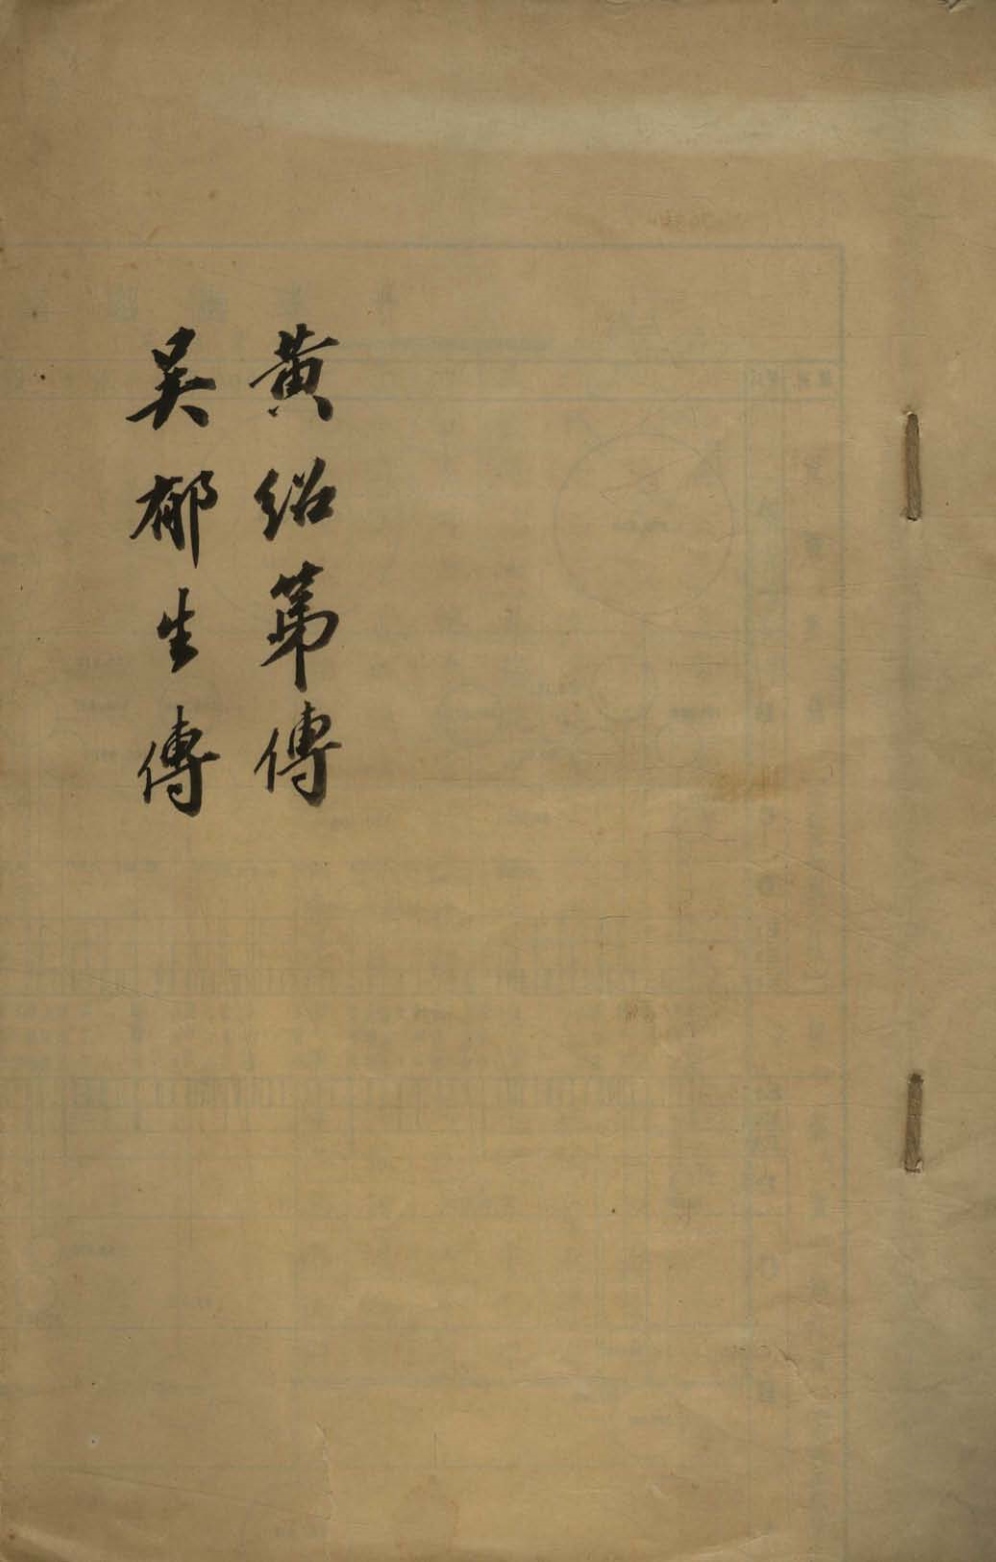 黄紹第傳
吳郁生傳